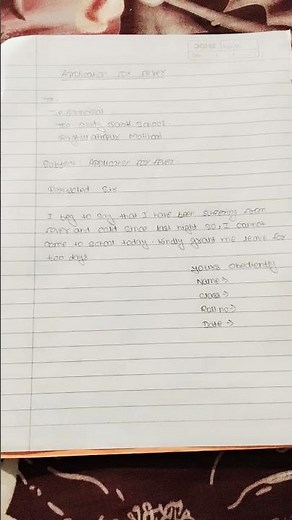 Application for fever
To
The Principal
School
Motihari
Subject Application for fever
Respected Sir
I beg to say that I have been suffering from
fever and cold since last night so, I cannot
come to school today. Kindly grant me leave for
two days
yours obediently
Name→
Class→
Roll no→
Date →